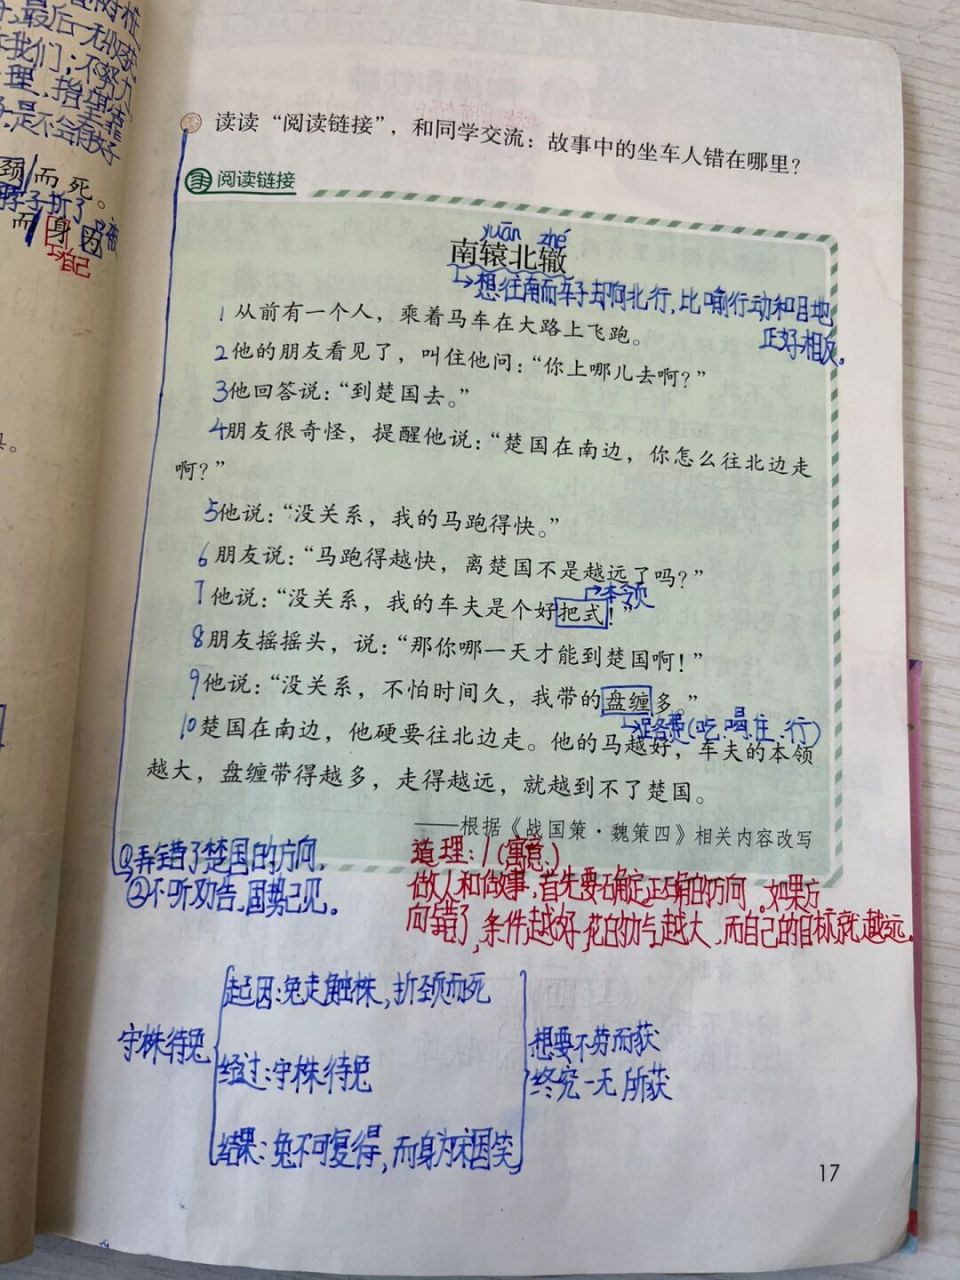 最后一无所获
我们：不努力
颈而死。
脖子折了
而身
自己
读读“阅读链接”，和同学交流：故事中的坐车人错在哪里？
阅读链接
yuān zhé
南辕北辙
想往南而车子却向北行，比喻行动和目地
正好相反。
1 从前有一个人，乘着马车在大路上飞跑。
2 他的朋友看见了，叫住他问：“你上哪儿去啊？”
3 他回答说：“到楚国去。”
4 朋友很奇怪，提醒他说：“楚国在南边，你怎么往北边走
啊？”
5 他说：“没关系，我的马跑得快。”
6 朋友说：“马跑得越快，离楚国不是越远了吗？”
本领
7 他说：“没关系，我的车夫是个好把式！”
8 朋友摇摇头，说：“那你哪一天才能到楚国啊！”
9 他说：“没关系，不怕时间久，我带的盘缠多。”
路费（吃、喝、住、行）
10 楚国在南边，他硬要往北边走。他的马越好，车夫的本领
越大，盘缠带得越多，走得越远，就越到不了楚国。
——根据《战国策·魏策四》相关内容改写
①弄错了楚国的方向.
②不听劝告，固势己见。
道理：（寓意）
做人和做事，首先要确定正确的方向。如果方
向错了，条件越好，花的力气越大，而自己的目标就越远。
守株待兔
起因：兔走触株，折颈而死
经过：守株待兔
结果：兔不可复得，而身为宋国笑
想要不劳而获
终究一无所获
17